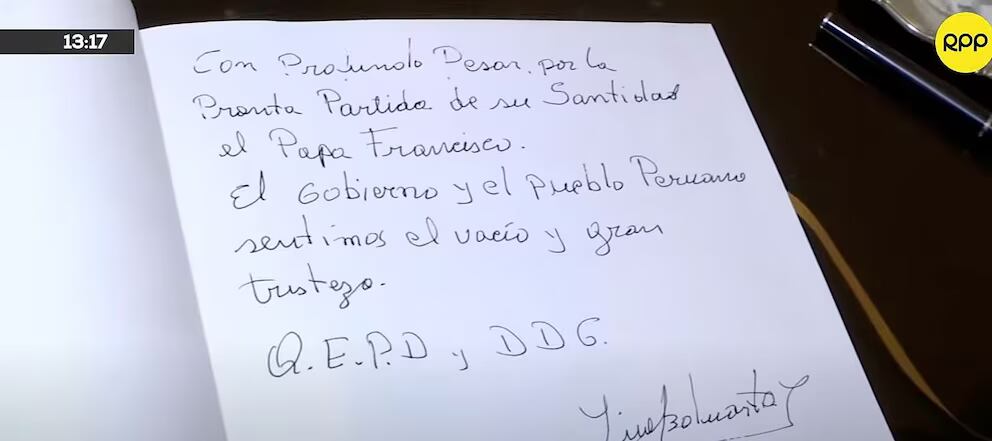 13:17
RPP
Con Profundo Pesar, por la
Pronta Partida de su Santidad
el Papa Francisco.
El Gobierno y el pueblo Peruano
sentimos el vacío y gran
tristeza.
Q.E.P.D y DDG.